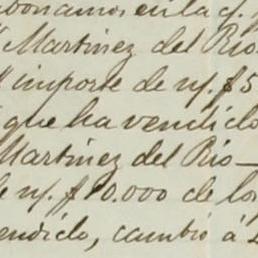 abonamos en la c/.
Martinez del Rio
importe de n/. $5
que ha vendido
Martinez del Rio—
de n/. $10.000 de los
vendido, cambió á